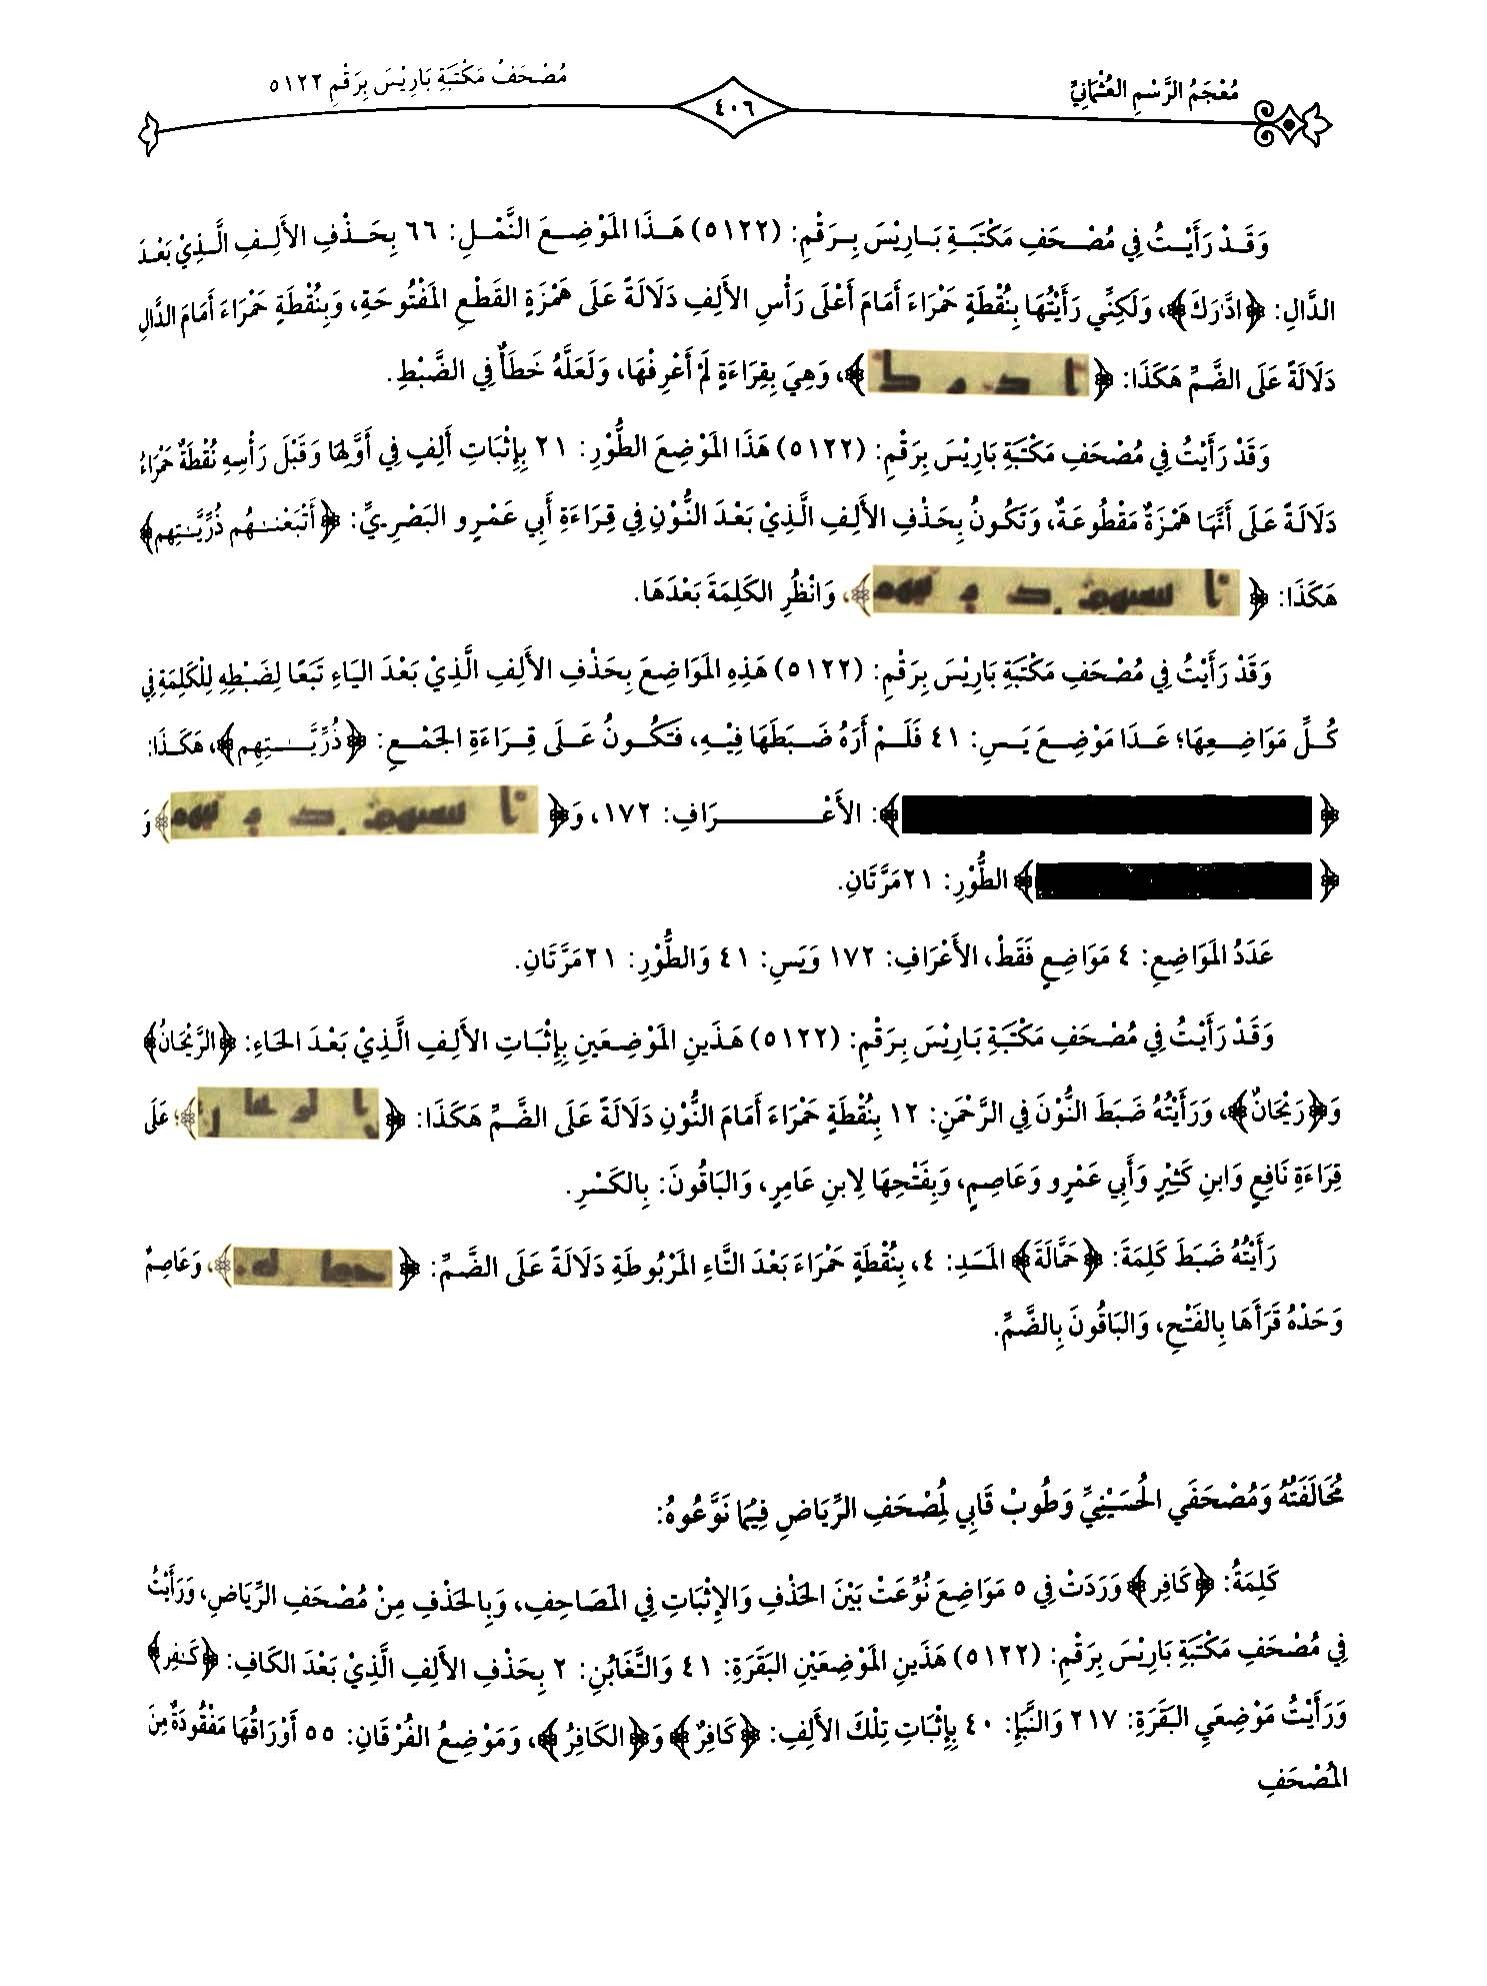 مُعْجَمُ الرَّسْمِ العُثْمَانِيِّ
٤٠٦
مُصْحَفُ مَكْتَبَةِ بَارِيْسَ بِرَقْمِ ٥١٢٢
وَقَدْ رَأَيْتُ فِي مُصْحَفِ مَكْتَبَةِ بَارِيْسَ بِرَقْمِ: (٥١٢٢) هَذَا المَوْضِعَ النَّمْلِ: ٦٦ بِحَذْفِ الأَلِفِ الَّذِيْ بَعْدَ
الدَّالِ: ﴿ادَّٰرَكَ﴾، وَلَكِنِّي رَأَيْتُهَا بِنُقْطَةٍ حَمْرَاءَ أَمَامَ أَعْلَى رَأْسِ الأَلِفِ دَلَالَةً عَلَى هَمْزَةِ القَطْعِ المَفْتُوحَةِ، وَبِنُقْطَةٍ حَمْرَاءَ أَمَامَ الدَّالِ
دَلَالَةً عَلَى الضَّمِّ هَكَذَا: ﴿ ﴾، وَهِيَ بِقِرَاءَةٍ لَمْ أَعْرِفْهَا، وَلَعَلَّهُ خَطَأٌ فِي الضَّبْطِ.
وَقَدْ رَأَيْتُ فِي مُصْحَفِ مَكْتَبَةِ بَارِيْسَ بِرَقْمِ: (٥١٢٢) هَذَا المَوْضِعَ الطُّوْرِ: ٢١ بِإِثْبَاتِ أَلِفٍ فِي أَوَّلِهَا وَقَبْلَ رَأْسِهِ نُقْطَةٌ حَمْرَاءُ
دَلَالَةً عَلَى أَنَّهَا هَمْزَةٌ مَقْطُوعَةٌ، وَتَكُونُ بِحَذْفِ الأَلِفِ الَّذِيْ بَعْدَ النُّوْنِ فِي قِرَاءَةِ أَبِي عَمْرٍو البَصْرِيِّ: ﴿أَتْبَعْنَـٰهُم ذُرِّيَّـٰتِهِم﴾
هَكَذَا: ﴿ ﴾، وَانْظُرِ الكَلِمَةَ بَعْدَهَا.
وَقَدْ رَأَيْتُ فِي مُصْحَفِ مَكْتَبَةِ بَارِيْسَ بِرَقْمِ: (٥١٢٢) هَذِهِ المَوَاضِعَ بِحَذْفِ الأَلِفِ الَّذِيْ بَعْدَ اليَاءِ تَبَعًا لِضَبْطِهِ لِلْكَلِمَةِ فِي
كُلِّ مَوَاضِعِهَا؛ عَدَا مَوْضِعَ يَسِ: ٤١ فَلَمْ أَرَهُ ضَبَطَهَا فِيْهِ، فَتَكُونُ عَلَى قِرَاءَةِ الجَمْعِ: ﴿ذُرِّيَّـٰتِهِم﴾، هَكَذَا:
﴿ ﴾: الأَعْرَافِ: ١٧٢، وَ﴿ ﴾ وَ
﴿ ﴾ الطُّوْرِ: ٢١مَرَّتَانِ.
عَدَدُ المَوَاضِعِ: ٤ مَوَاضِعٍ فَقَطْ، الأَعْرَافِ: ١٧٢ وَيَسِ: ٤١ وَالطُّوْرِ: ٢١مَرَّتَانِ.
وَقَدْ رَأَيْتُ فِي مُصْحَفِ مَكْتَبَةِ بَارِيْسَ بِرَقْمِ: (٥١٢٢) هَذَينِ المَوْضِعَينِ بِإِثْبَاتِ الأَلِفِ الَّذِيْ بَعْدَ الحَاءِ: ﴿الرَّيْحَانُ﴾
وَ﴿رَيْحَانٌ﴾، وَرَأَيْتُهُ ضَبَطَ النُّوْنَ فِي الرَّحْمَنِ: ١٢ بِنُقْطَةٍ حَمْرَاءَ أَمَامَ النُّوْنِ دَلَالَةً عَلَى الضَّمِّ هَكَذَا: ﴿ ﴾؛ عَلَى
قِرَاءَةِ نَافِعٍ وَابنِ كَثِيْرٍ وَأَبِي عَمْرٍو وَعَاصِمٍ، وَبِفَتْحِهَا لِابنِ عَامِرٍ، وَالبَاقُونَ: بِالكَسْرِ.
رَأَيْتُهُ ضَبَطَ كَلِمَةَ: ﴿حَمَّالَةَ﴾ المَسَدِ: ٤، بِنُقْطَةٍ حَمْرَاءَ بَعْدَ التَّاءِ المَرْبُوطَةِ دَلَالَةً عَلَى الضَّمِّ: ﴿ ﴾، وَعَاصِمٌ
وَحَدْهُ قَرَأَهَا بِالفَتْحِ، وَالبَاقُونَ بِالضَّمِّ.
مُخَالَفَتُهُ وَمُصْحَفَي الحُسَيْنِيِّ وَطُوبْ قَابِي لِمُصْحَفِ الرِّيَاضِ فِيْمَا نَوَّعُوهُ:
كَلِمَةُ: ﴿كَافِر﴾ وَرَدَتْ فِي ٥ مَوَاضِعَ نُوِّعَتْ بَيْنَ الحَذْفِ وَالإِثْبَاتِ فِي المَصَاحِفِ، وَبِالحَذْفِ مِنْ مُصْحَفِ الرِّيَاضِ، وَرَأَيْتُ
فِي مُصْحَفِ مَكْتَبَةِ بَارِيْسَ بِرَقْمِ: (٥١٢٢) هَذَينِ المَوْضِعَيْنِ البَقَرَةِ: ٤١ وَالتَّغَابُنِ: ٢ بِحَذْفِ الأَلِفِ الَّذِيْ بَعْدَ الكَافِ: ﴿كَـٰفِر﴾
وَرَأَيْتُ مَوْضِعَيِ البَقَرَةِ: ٢١٧ وَالنَّبَإِ: ٤٠ بِإِثْبَاتِ تِلْكَ الأَلِفِ: ﴿كَافِرٌ﴾ وَ﴿الكَافِرُ﴾، وَمَوْضِعُ الفُرْقَانِ: ٥٥ أَوْرَاقُهَا مَفْقُودَةٌ مِنَ
المُصْحَفِ